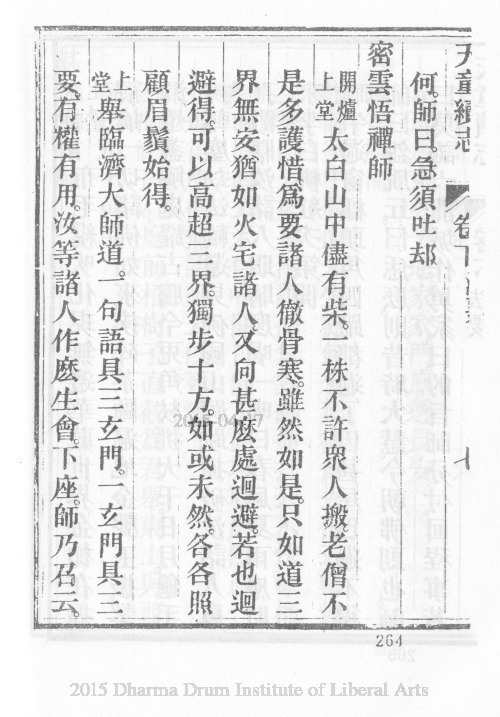 天童續志 卷下 七
何。師曰。急須吐却
密雲悟禪師
開爐上堂太白山中儘有柴。一株不許衆人搬。老僧不
是多護惜。爲要諸人徹骨寒。雖然如是。只如道三
界無安猶如火宅諸人。又向甚麽處迴避。若也迴
避得。可以高超三界。獨步十方。如或未然。各各照
顧眉鬚始得。
上堂舉臨濟大師道。一句語具三玄門。一玄門具三
要。有權有用。汝等諸人作麽生會。下座。師乃召云。
264
2015 Dharma Drum Institute of Liberal Arts